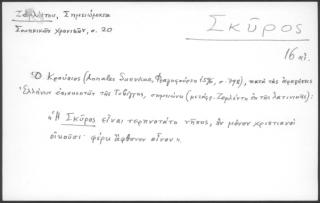 Ζερλέντου, Σημειώματα
Σκῦρος
Σκυριακῶν Χρονικῶν, σ. 20
16 αἰ.
Ὁ Κρούσιος (Annales Suevici, Φραγκφούρτη 1596, σ. 798), κατὰ τὰς ἀφηγήσεις
Ἑλλήνων ἐπισκεπτῶν τῆς Τυβίγγης, σημειώνει (μετάφρ. Ζερλέντη ἐκ τῆς λατινικῆς):
«Ἡ Σκῦρος εἶναι τερπνοτάτη νῆσος, ἣν μόνον χριστιανοὶ
οἰκοῦσι· φέρει ἄφθονον οἶνον.»